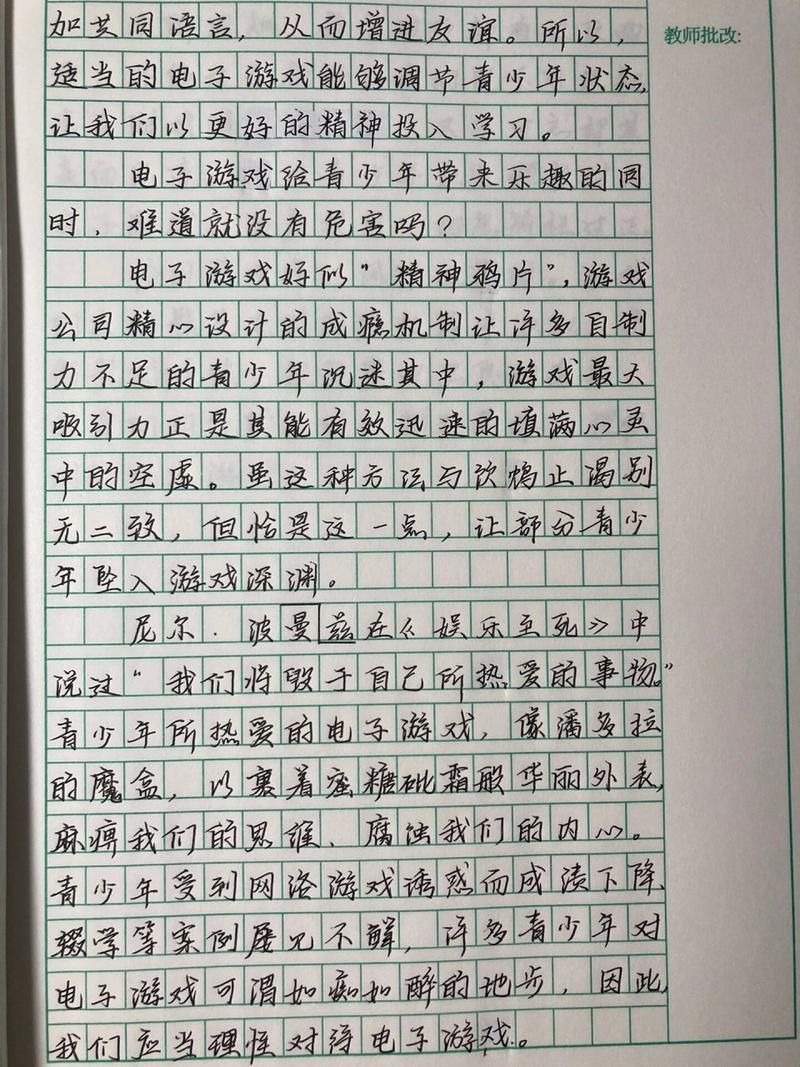 加共同语言，从而增进友谊。所以，
教师批改:
适当的电子游戏能够调节青少年状态，
让我们以更好的精神投入学习。
电子游戏给青少年带来乐趣的同
时，难道就没有危害吗？
电子游戏好似“精神鸦片”，游戏
公司精心设计的成瘾机制让许多自制
力不足的青少年沉迷其中，游戏最大
吸引力正是其能有效迅速的填满心灵
中的空虚。虽这种方法与饮鸩止渴别
无二致，但恰是这一点，让部分青少
年坠入游戏深渊。
尼尔·波曼兹在《娱乐至死》中
说过“我们将毁于自己所热爱的事物。”
青少年所热爱的电子游戏，像潘多拉
的魔盒，以裹着蜜糖砒霜般华丽外表，
麻痹我们的思维、腐蚀我们的内心。
青少年受到网络游戏诱惑而成绩下降、
辍学等案例屡见不鲜，许多青少年对
电子游戏可谓如痴如醉的地步，因此，
我们应当理性对待电子游戏。